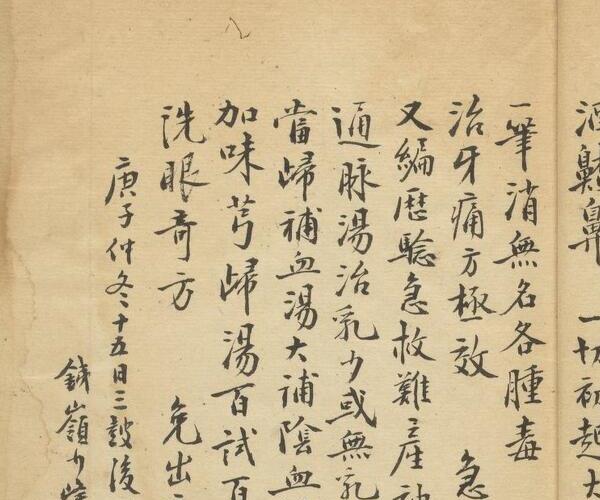 酒齄鼻 一切初起大
一筆消無名各腫毒
治牙痛方極效 急
又編歷驗急救難產神
通脉湯治乳少或無乳
當歸補血湯大補陰血
加味芎歸湯百試百
洗眼奇方 免出
庚子仲冬十五日三鼓後
鐵嶺少